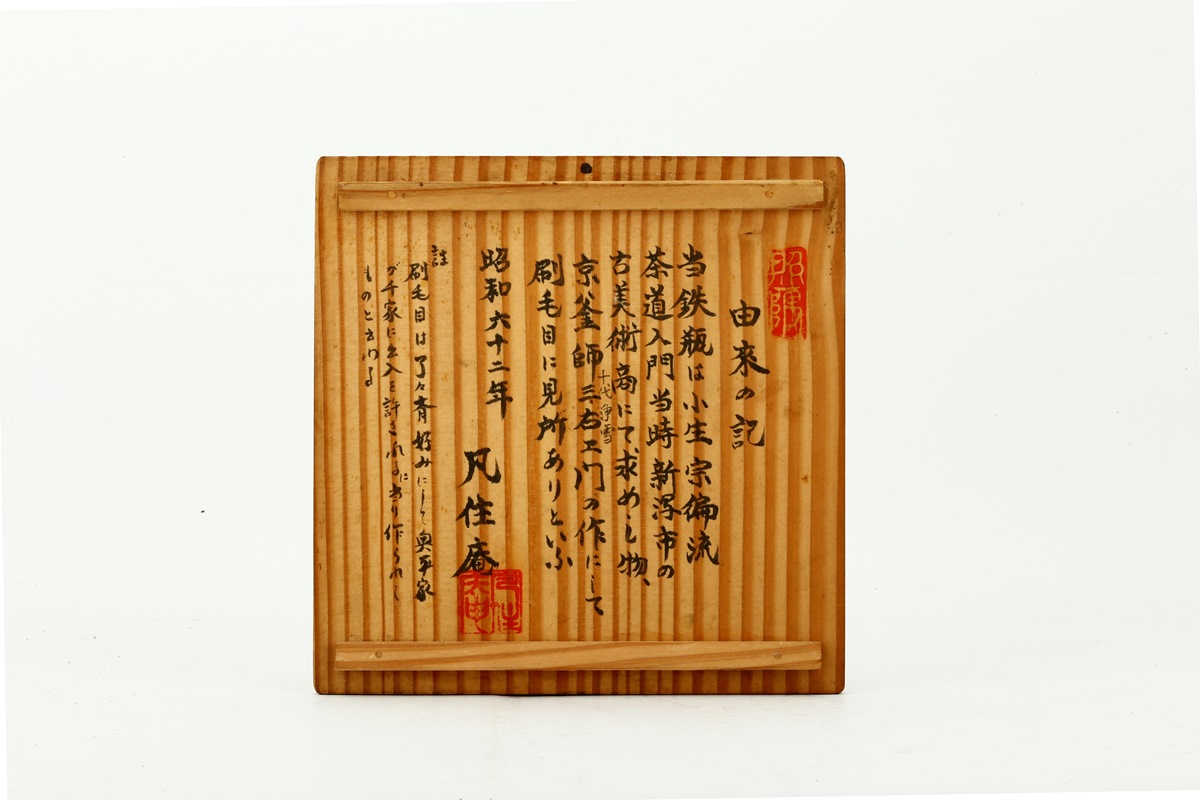 由來の記
当鉄瓶は小生宗偏流
茶道入門当時新潟市の
古美術商にて求めし物、
十代浄雪
京釜師三右エ門の作にして
刷毛目に見所ありといふ
昭和六十二年
凡住庵
註
刷毛目は了々斉好みにして奥平家
が千家に出入を許されるに当り作られし
ものと云われる